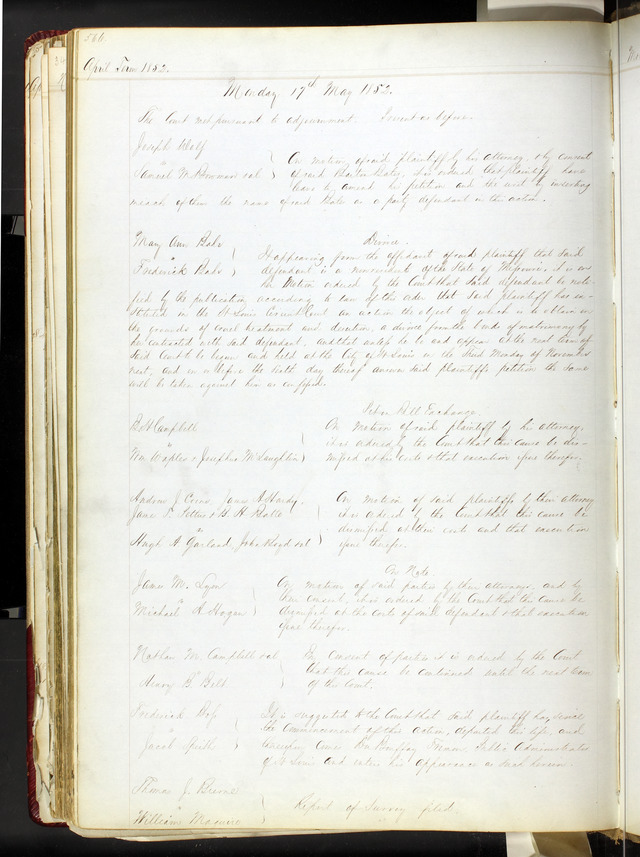 566.
April Term 1852.
Monday 17th May 1852.
The Court met pursuant to adjournment. Present as before.
Joseph Wolf
vs
Samuel W. Bowman et al
On motion of said plaintiff by his attorney, & by consent
of said Barton Bates, it is ordered that plaintiff have
leave to amend his petition and the writ by inserting
in each of them the name of said Bates as a party defendant in this action.
Mary Ann Bahr
vs
Frederick Bahr
Divorce.
It appearing from the affidavit of said plaintiff that said
defendant is a nonresident of the State of Missouri, it is on
her Motion ordered by the Court that said defendant be noti-
fied by the publication according to law of this order that said plaintiff has in-
stituted in the St Louis Circuit Court an action the object of which is to obtain on
the grounds of cruel treatment and desertion, a divorce from the bonds of matrimony by
her contracted with said defendant. And that unless he be and appear at the next term of
said Court to be begun and held at the City of St Louis on the third Monday of November
next, and on or before the sixth day thereof answer said plaintiffs petition the same
will be taken against him as confessed.
B. H. Campbell
vs
Wm Waples & Josephus McLaughlin
Bill Exchange.
On motion of said plaintiff by his attorney,
it is ordered by the Court that this cause be dis-
missed at his costs & that execution issue therefor.
Andrew J. James A. Hardy.
James & B. H.
vs
Hugh A Garland, John et al
On motion of said plaintiffs by their attorney
it is ordered by the Court that this cause be
dismissed at their costs and that execution
issue therefor.
James M. Lyon
vs
Michael A. Hogan
On Note.
On motion of said parties by their attorneys, and by
their consent, it is ordered by the Court that this cause be
dismissed at the costs of said defendant & that execution
issue therefor.
Nathan M. Campbell et al
vs
Henry B. Belt
By consent of parties it is ordered by the Court
that this cause be continued until the next term
of this Court.
Frederick
vs
Jacob
It is suggested to the Court that said plaintiff has since
the commencement of this action, departed this life, and
thereupon comes Public Administrator
of St Louis and enters his appearance as such herein.
Thomas J.
vs
William
Report of Survey filed.